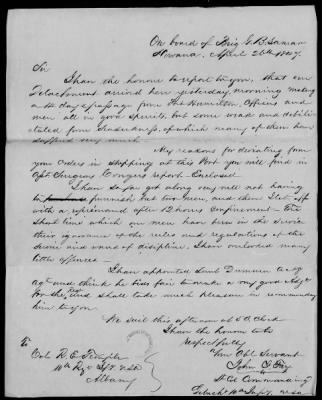 On board of Brig G. B. Lamar
Havana, April 26th 1847.
Sir
I have the honour to report to you, that our
Detachment arrived here yesterday morning making
a day passage from Fort Hamilton, Officers and
men all in good spirits, but some weak and debili-
tated from Seasickness of which many of them have
suffered very much
My reasons for deviating from
your Orders in stopping at this Port you will find in
Asst Surgeons Congers report - Enclosed
I have so far got along very well not having
to furnish but two men, and then let off
with a reprimand after 12 hours confinement - the
short time which our men have been in the service
their ignorance of the rules and regulations of the
Service and want of discipline. I have overlooked many
little offences -
I have appointed Lieut to act
Adjt and think he bids fair to make a very good Adjt
for the Regt and shall take much pleasure in recommending
him to you.
We sail this afternoon at 5 O'clock
I have the honour to be
respectfully
Your Obt Servant
John G. Fay
Lt Col Commanding
Detacht 10th Infy. U.S.A.
To
Col. R. E. Temple
10th Regt Inft. U.S.A.
Albany